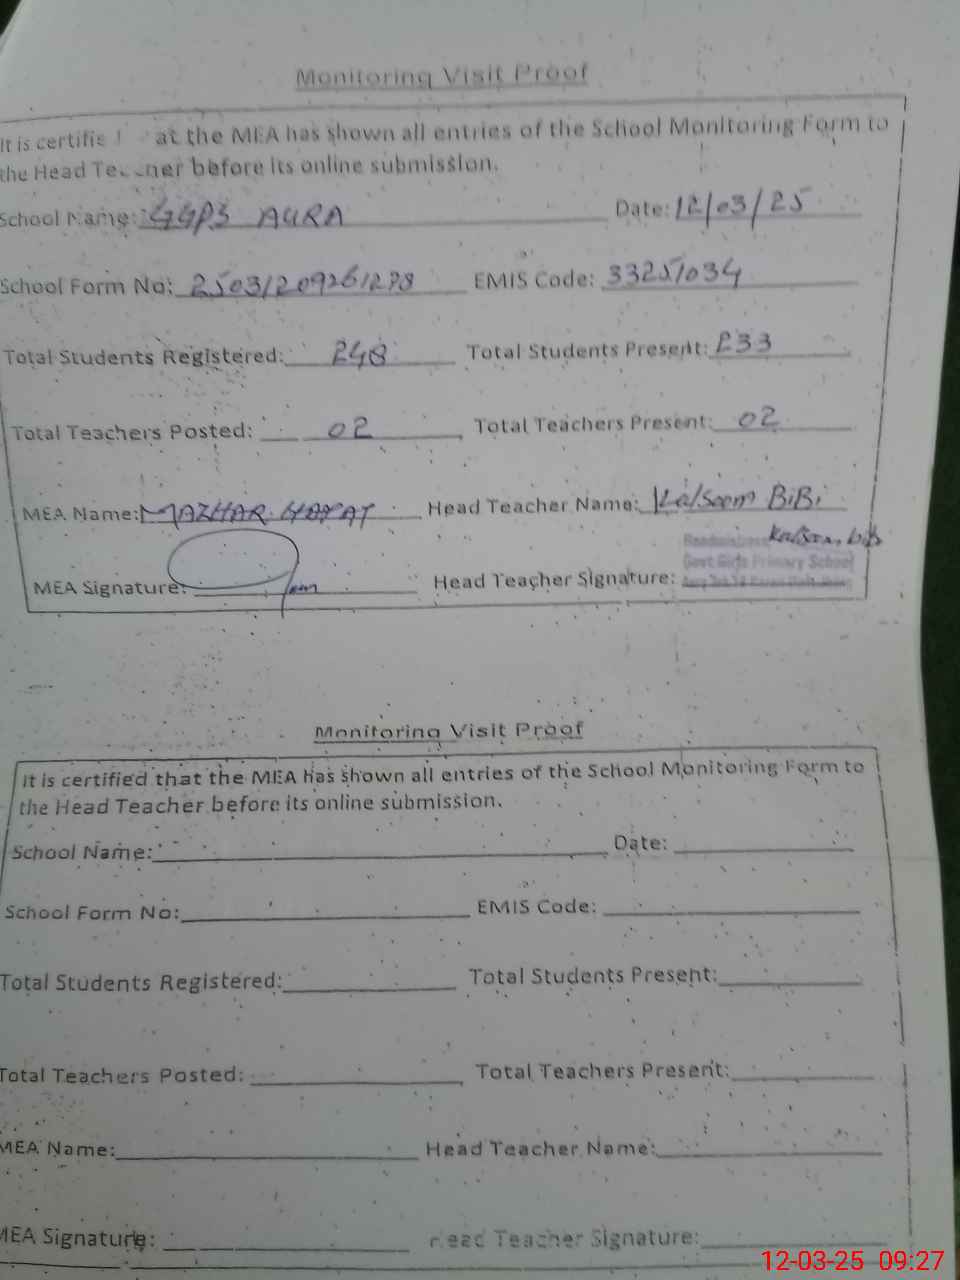 Monitoring Visit Proof
It is certifie at the MEA has shown all entries of the School Monitoring Form to
the Head Teacher before its online submission.
School Name: GGPS AURA Date: 12/03/25
School Form No: EMIS Code: 33251034
Total Students Registered: 248 Total Students Present: 233
Total Teachers Posted: 02 Total Teachers Present: 02
MEA Name: MAZHAR HAYAT Head Teacher Name: Kalsoom BiBi
MEA Signature: Head Teacher Signature:
Govt Girls Primary School
Monitoring Visit Proof
It is certified that the MEA has shown all entries of the School Monitoring Form to
the Head Teacher before its online submission.
School Name: Date:
School Form No: EMIS Code:
Total Students Registered: Total Students Present:
Total Teachers Posted: Total Teachers Present:
MEA Name: Head Teacher Name:
MEA Signature: Head Teacher Signature:
12-03-25 09:27